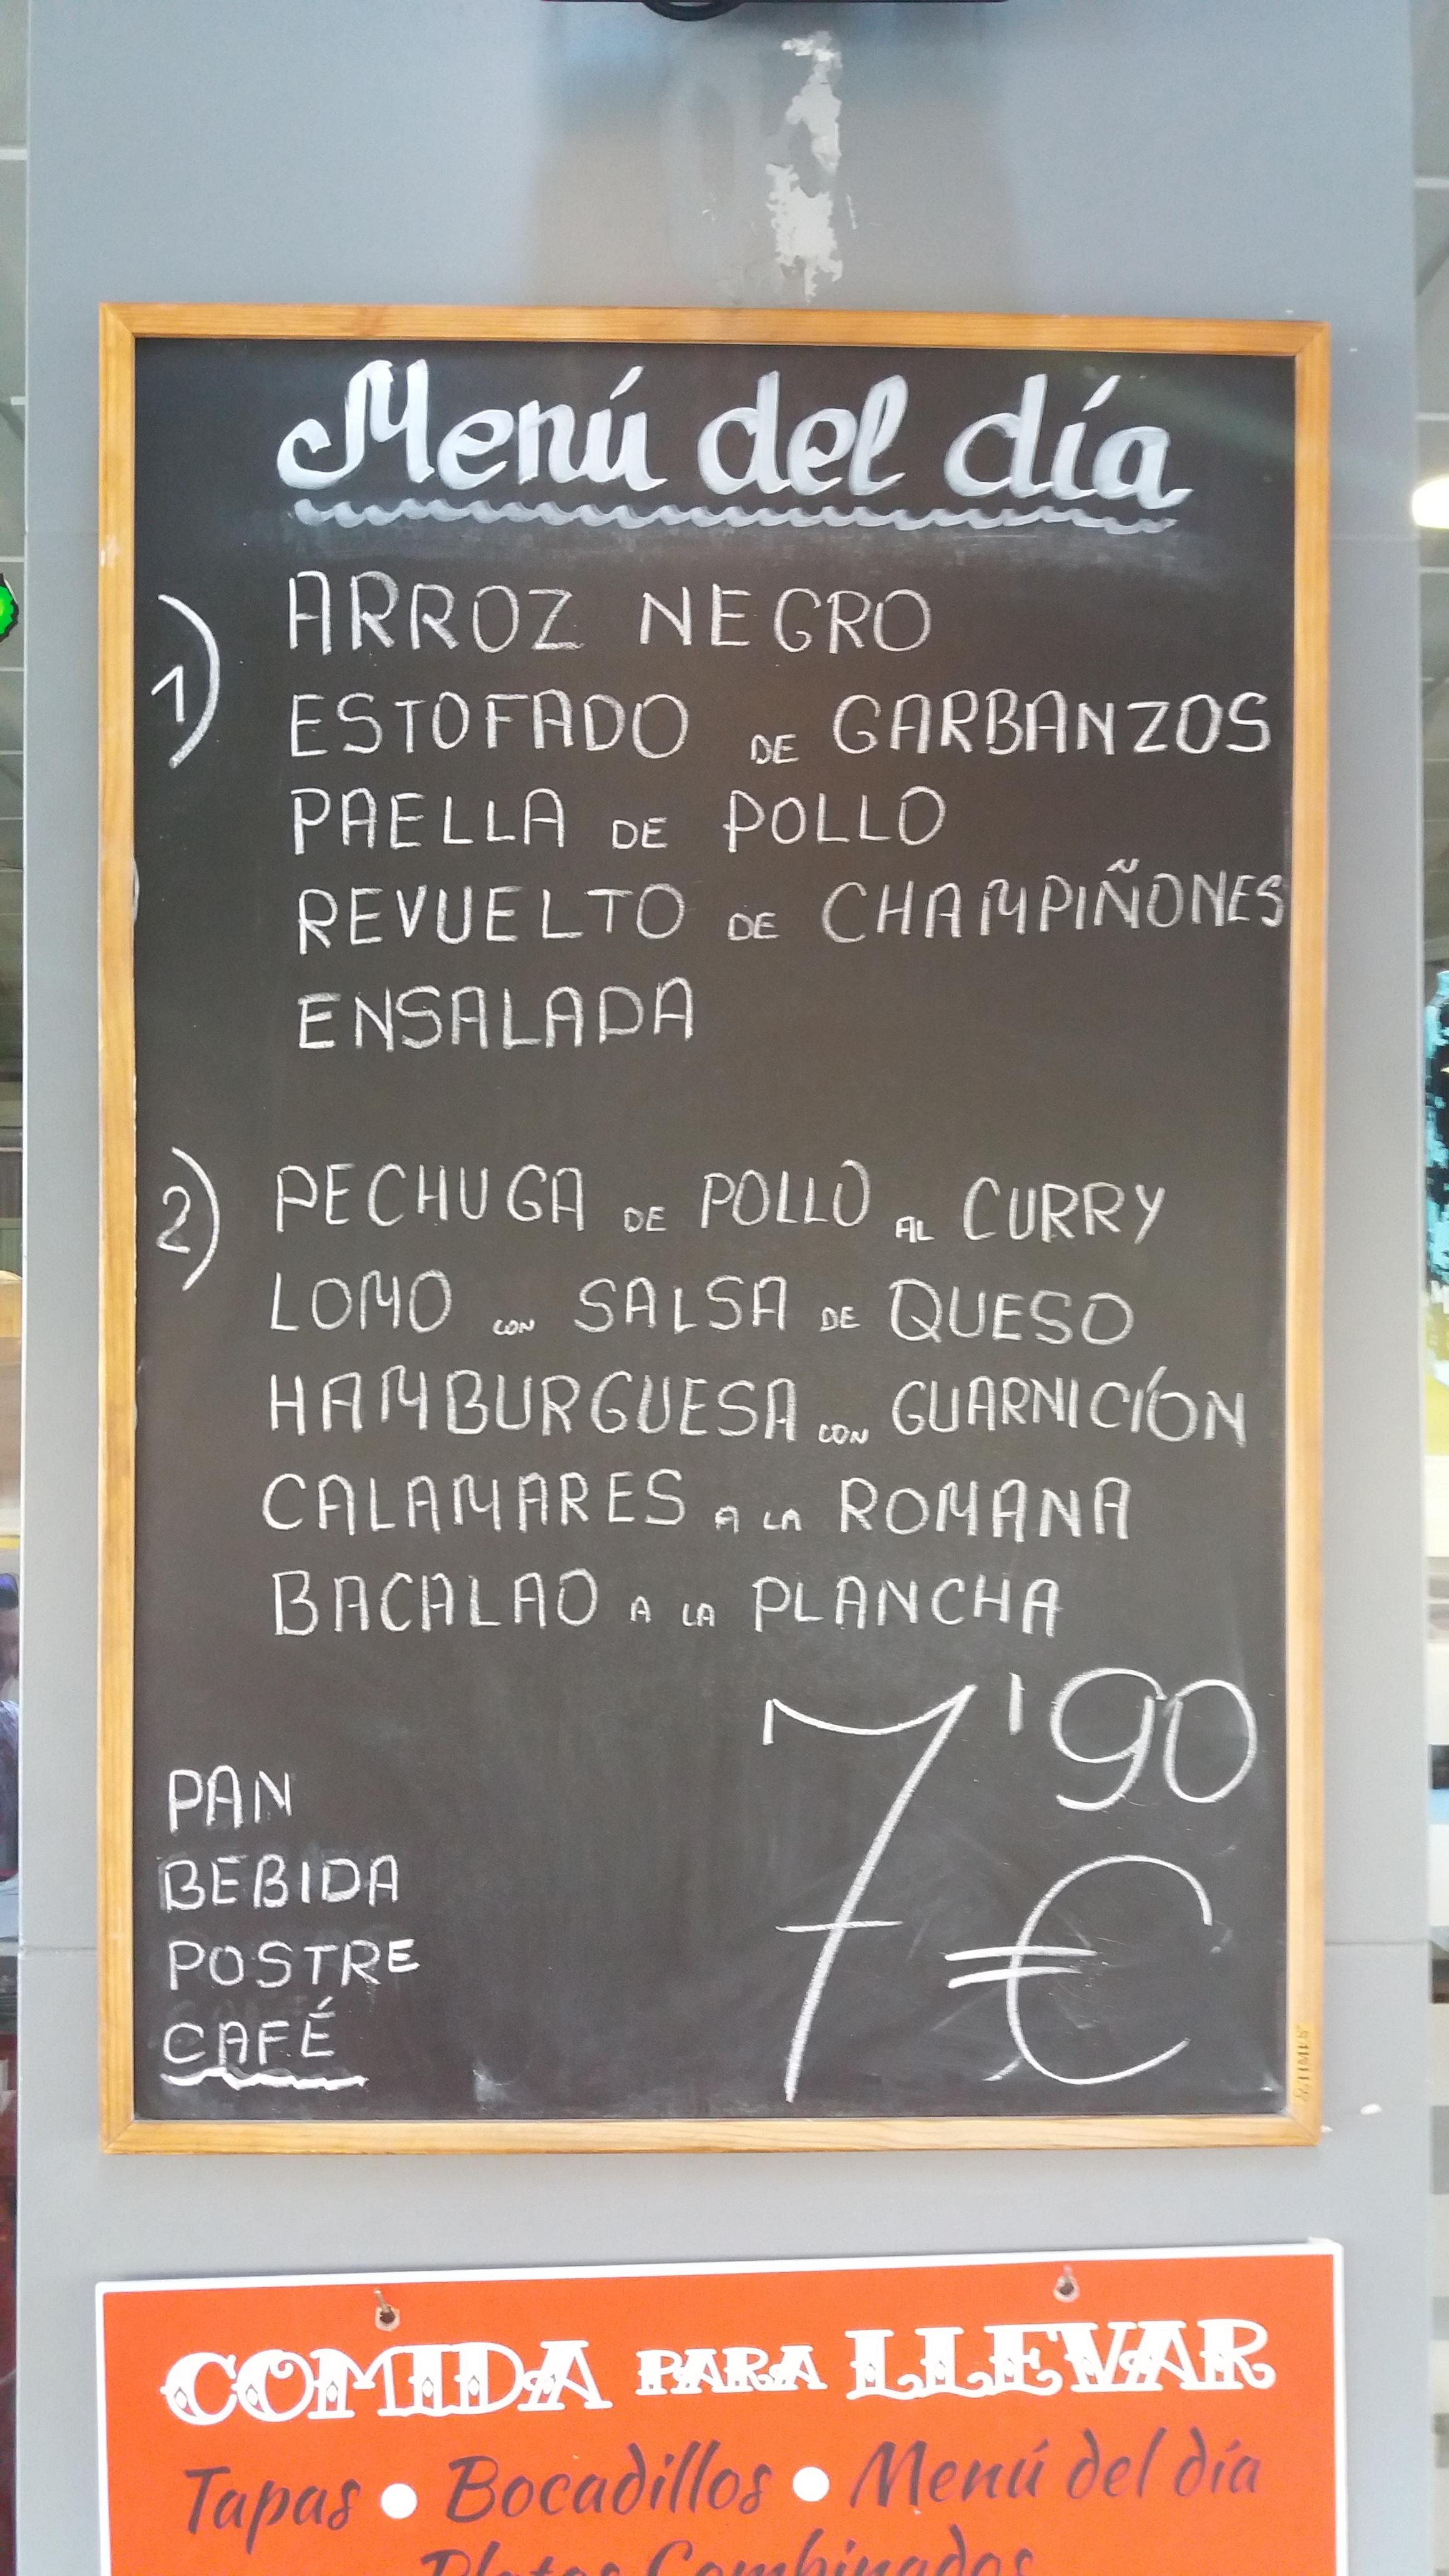 Menú del día
1) ARROZ NEGRO
ESTOFADO DE GARBANZOS
PAELLA DE POLLO
REVUELTO DE CHAMPIÑONES
ENSALADA
2) PECHUGA DE POLLO AL CURRY
LOMO CON SALSA DE QUESO
HAMBURGUESA CON GUARNICIÓN
CALAMARES A LA ROMANA
BACALAO A LA PLANCHA
7'90 €
PAN
BEBIDA
POSTRE
CAFÉ
COMIDA PARA LLEVAR
Tapas • Bocadillos • Menú del día
Platos Combinados